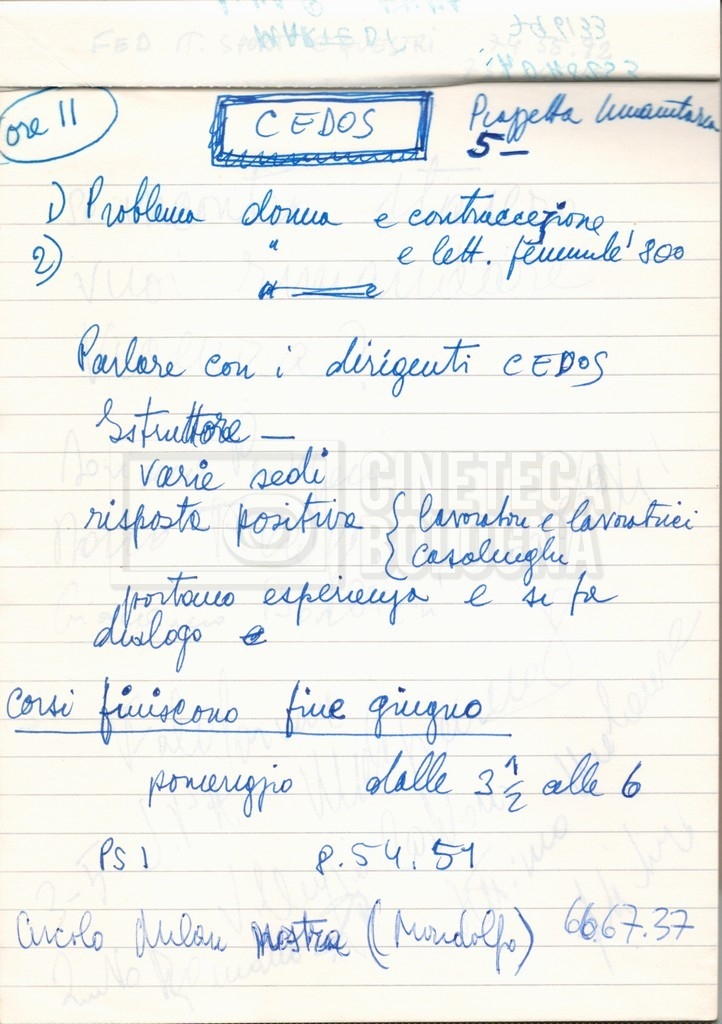 FED IT. SPO
MARTEDI
ore 11
CEDOS
Piazzetta Umanitaria
5 —
1) Problema donna e contraccezione
2) " e lett. femmile '800
Parlare con i dirigenti CEDOS
Istruttore —
varie sedi
risposta positiva { lavoratori e lavoratrici
casalinghe
portano esperienza e si fa
dialogo e
corsi finiscono fine giugno
pomeriggio dalle 3 1/2 alle 6
PSI 8.54.51
Circolo Milan nostra (Mondolfo) 66.67.37
CINETECA
BOLOGNA